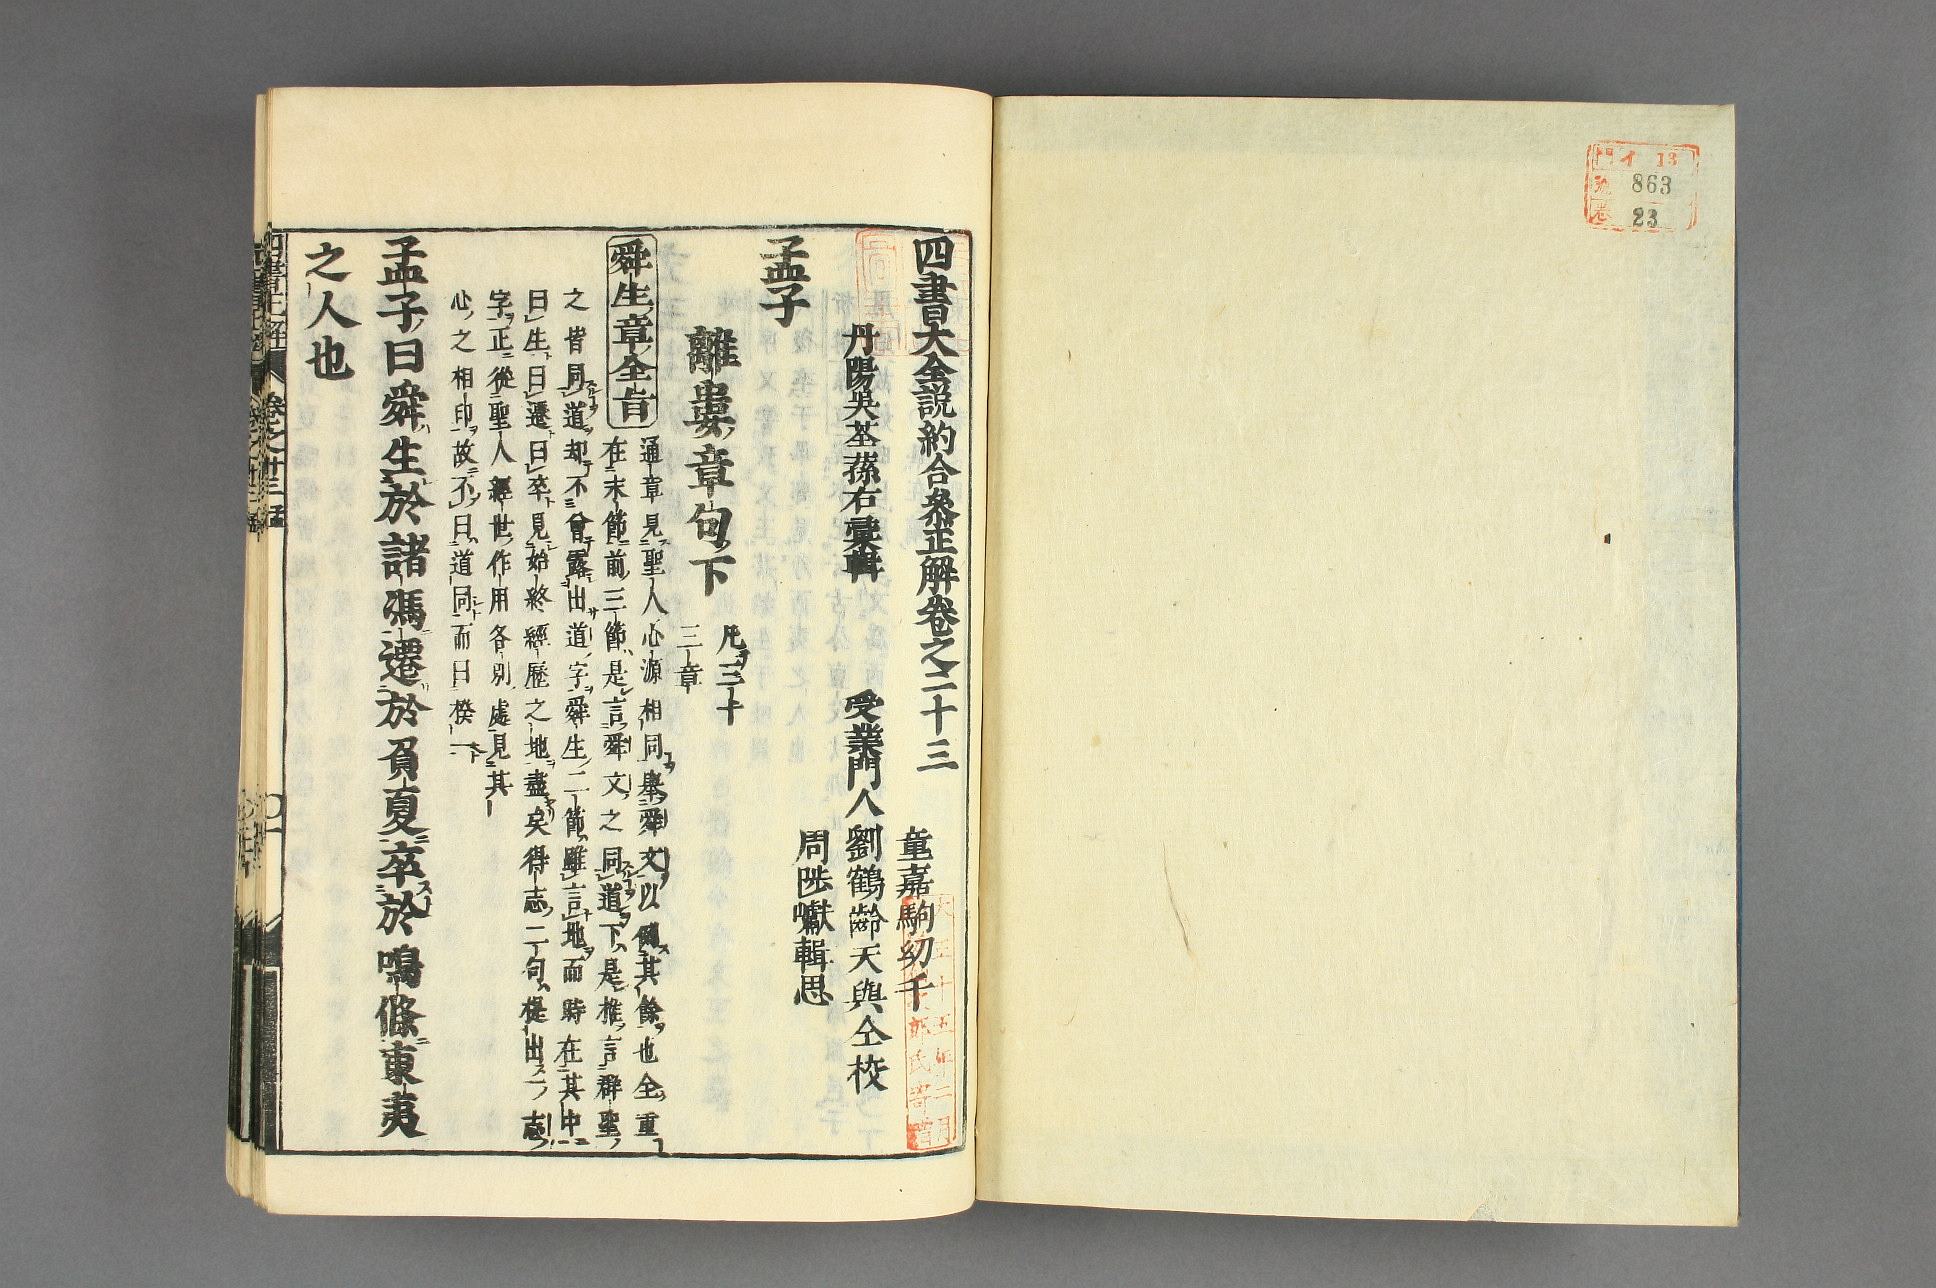 門 イ 13
號 863
卷 23
四書大全説約合参正解卷之二十三
丹陽吳荃蓀右彙輯
受業門人
童嘉駒初千
劉鶴齡天與仝校
周 獻輯思
孟子
離婁章句下
凡三十
三章
舜生章全旨
通章見聖人心源相同舉舜文以例其餘也全重
在末節前三節是言舜文之同道下是推言群聖
之皆同道却不曾露出道字舜生二節雖言地而時在其中
曰生曰遷曰卒見始終經歷之地盡矣得志二句提出一志
字正從聖人經世作用各別處見其
心之相印故不曰道同而曰揆一
孟子曰舜生於諸馮遷於負夏卒於鳴條東夷
之人也
四書正解
卷之廿三 孟